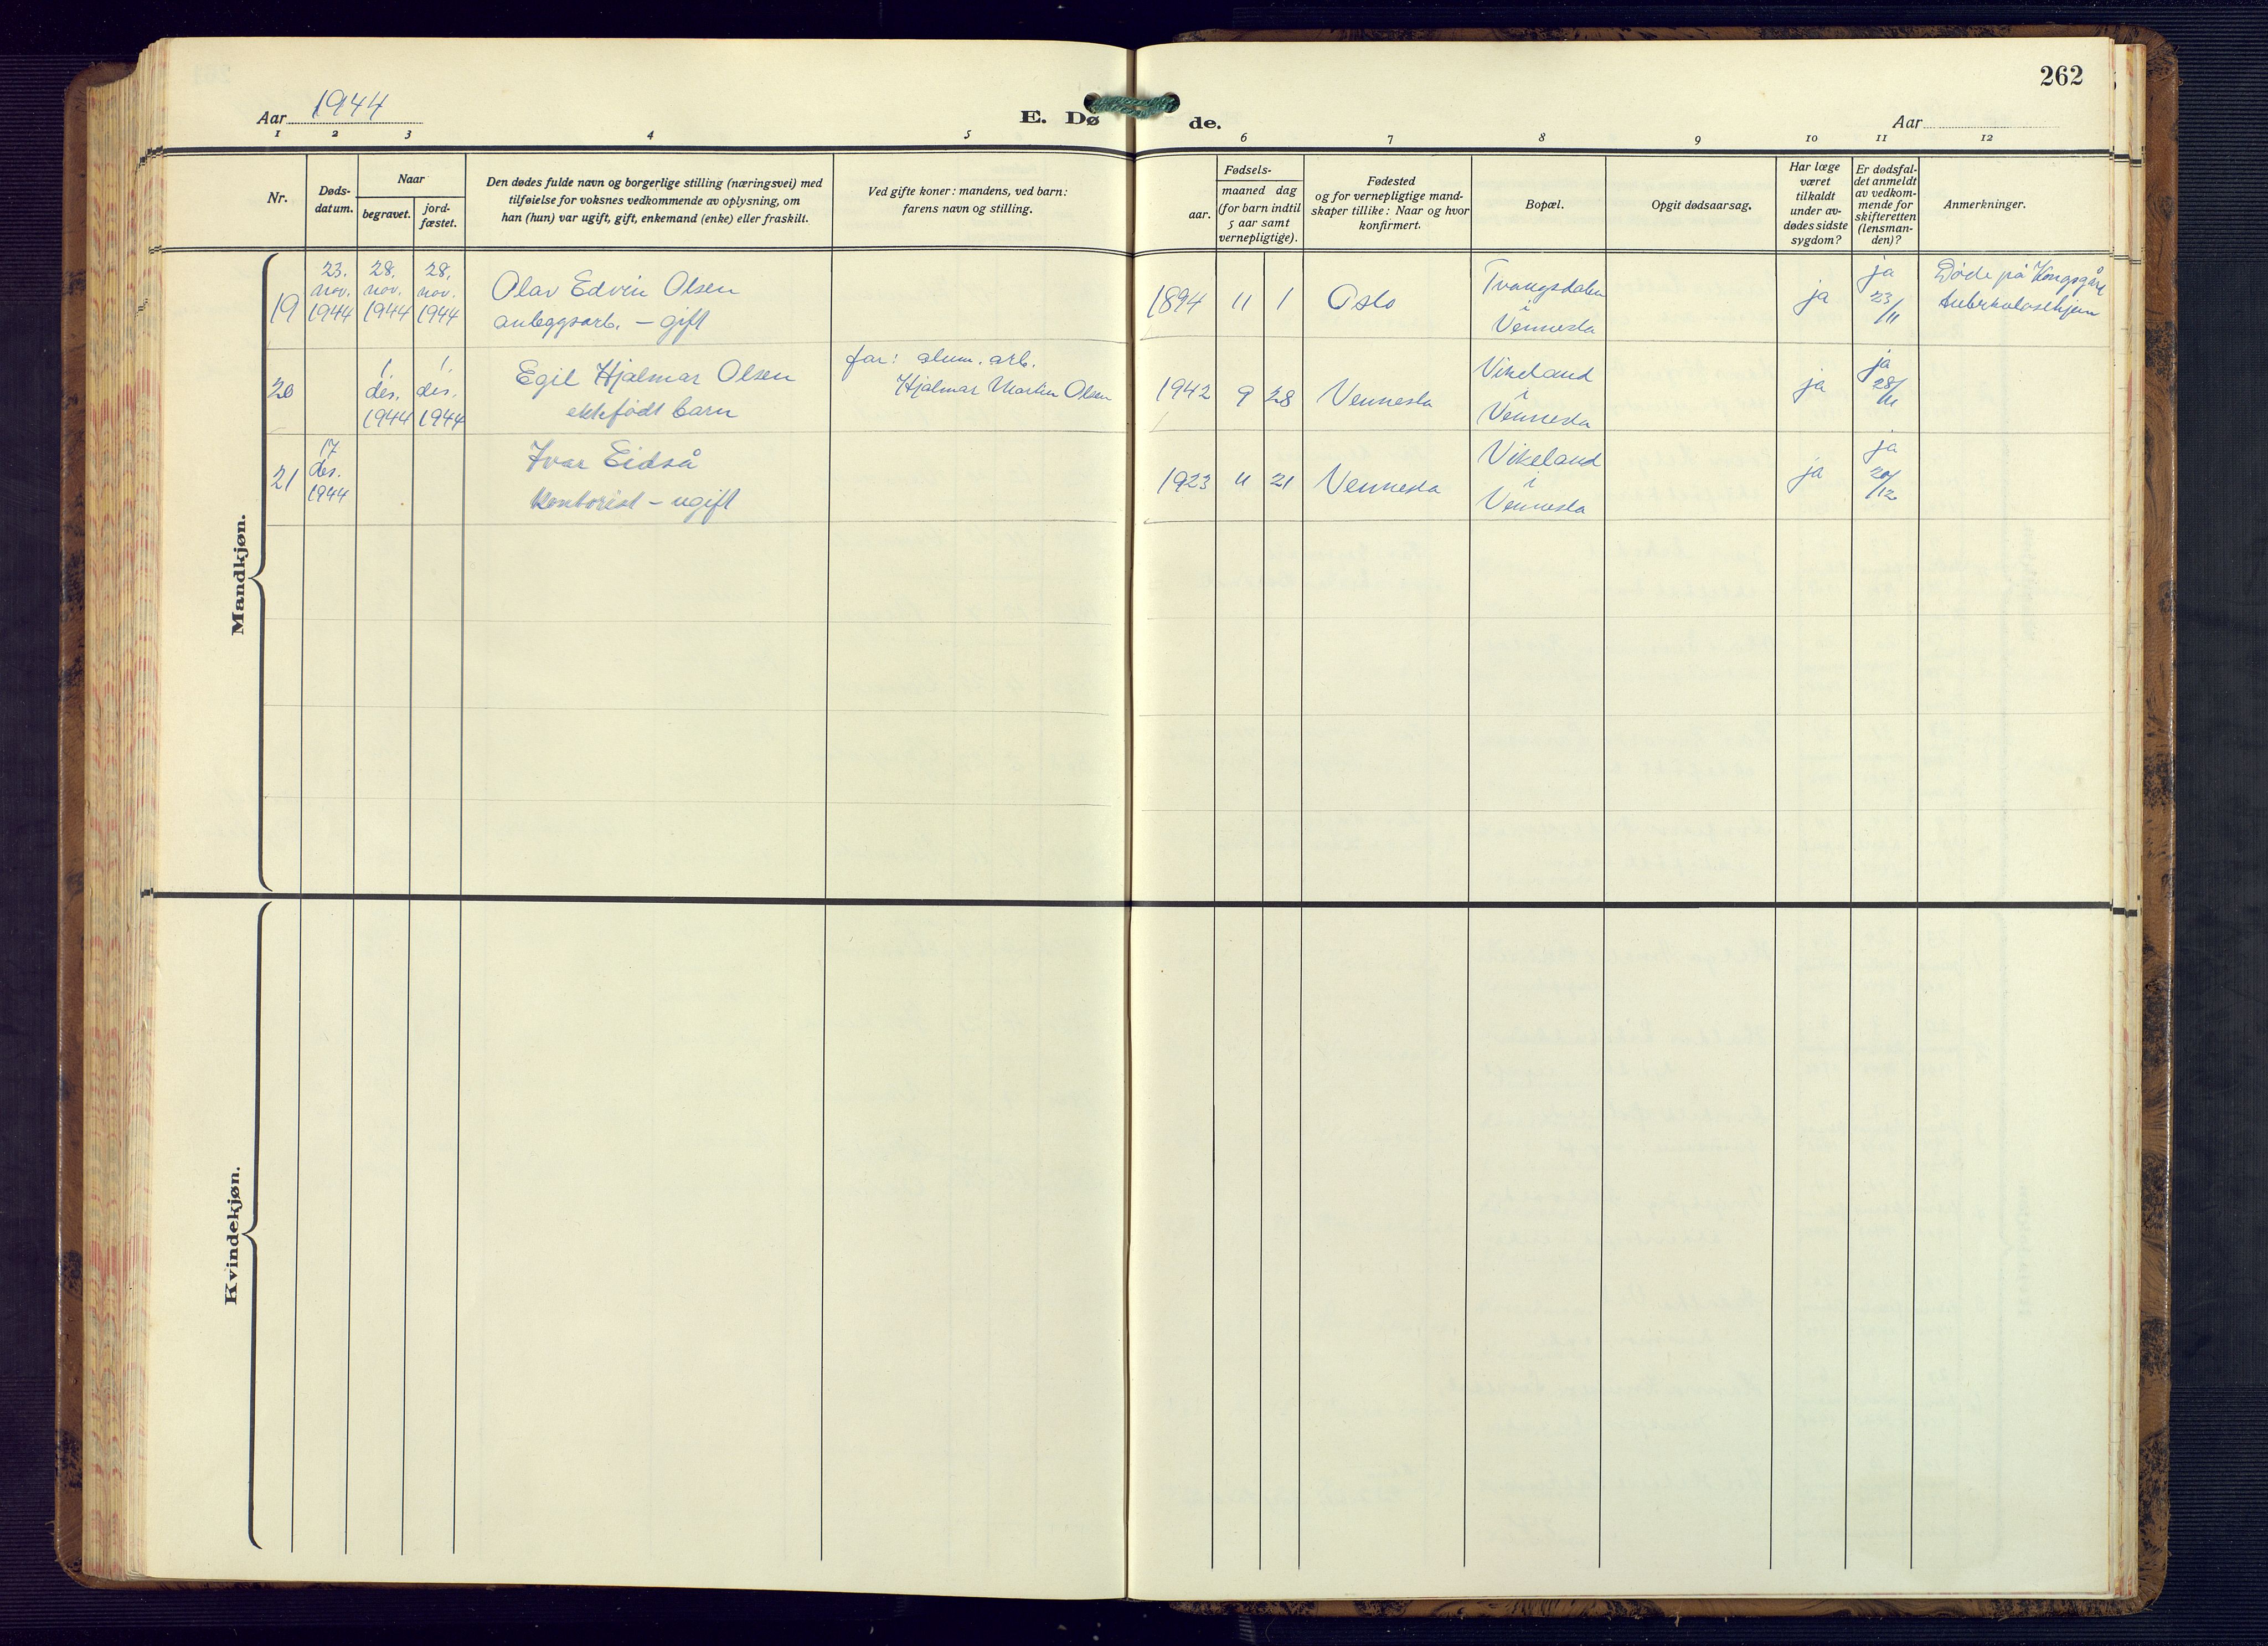 262
Aar 1944
E. Døde.
Aar
1 2 3 4 5 6 7 8 9 10 11 12
Nr.
Døds-
datum.
Naar
begravet.
jord-
fæstet.
Den dødes fulde navn og borgerlige stilling (næringsvei) med
tilføielse for voksnes vedkommende av oplysning, om
han (hun) var ugift, gift, enkemand (enke) eller fraskilt.
Ved gifte koner: mandens, ved barn:
farens navn og stilling.
Fødsels-
aar.
maaned dag
(for barn indtil
5 aar samt
vernepligtige).
Fødested
og for vernepligtige mand-
skaper tillike: Naar og hvor
konfirmert.
Bopæl.
Opgit dødsaarsag.
Har læge
været
tilkaldt
under av-
dødes sidste
sygdom?
Er dødsfal-
det anmeldt
av vedkom-
mende for
skifteretten
(lensman-
den)?
Anmerkninger.
Mandkjøn.
19
23.
nov.
1944
28.
nov.
1944
28.
nov.
1944
Olav Edvin Olsen
anleggsarb. – gift
1894 11 1
Oslo
Tvangsdalen
i
Vennesla
ja
ja
23/11
Døde på Kongsgård
tuberkulosehjem
20
1.
des.
1944
1.
des.
1944
Egil Hjalmar Olsen
ektefødt barn
far: alum. arb.
Hjalmar Martin Olsen
1942 9 28
Vennesla
Vikeland
i
Vennesla
ja
ja
28/11
21
17
des.
1944
Ivar Eidså
kontorist – ugift
1923 11 21
Vennesla
Vikeland
i
Vennesla
ja
ja
20/12
Kvindekjøn.